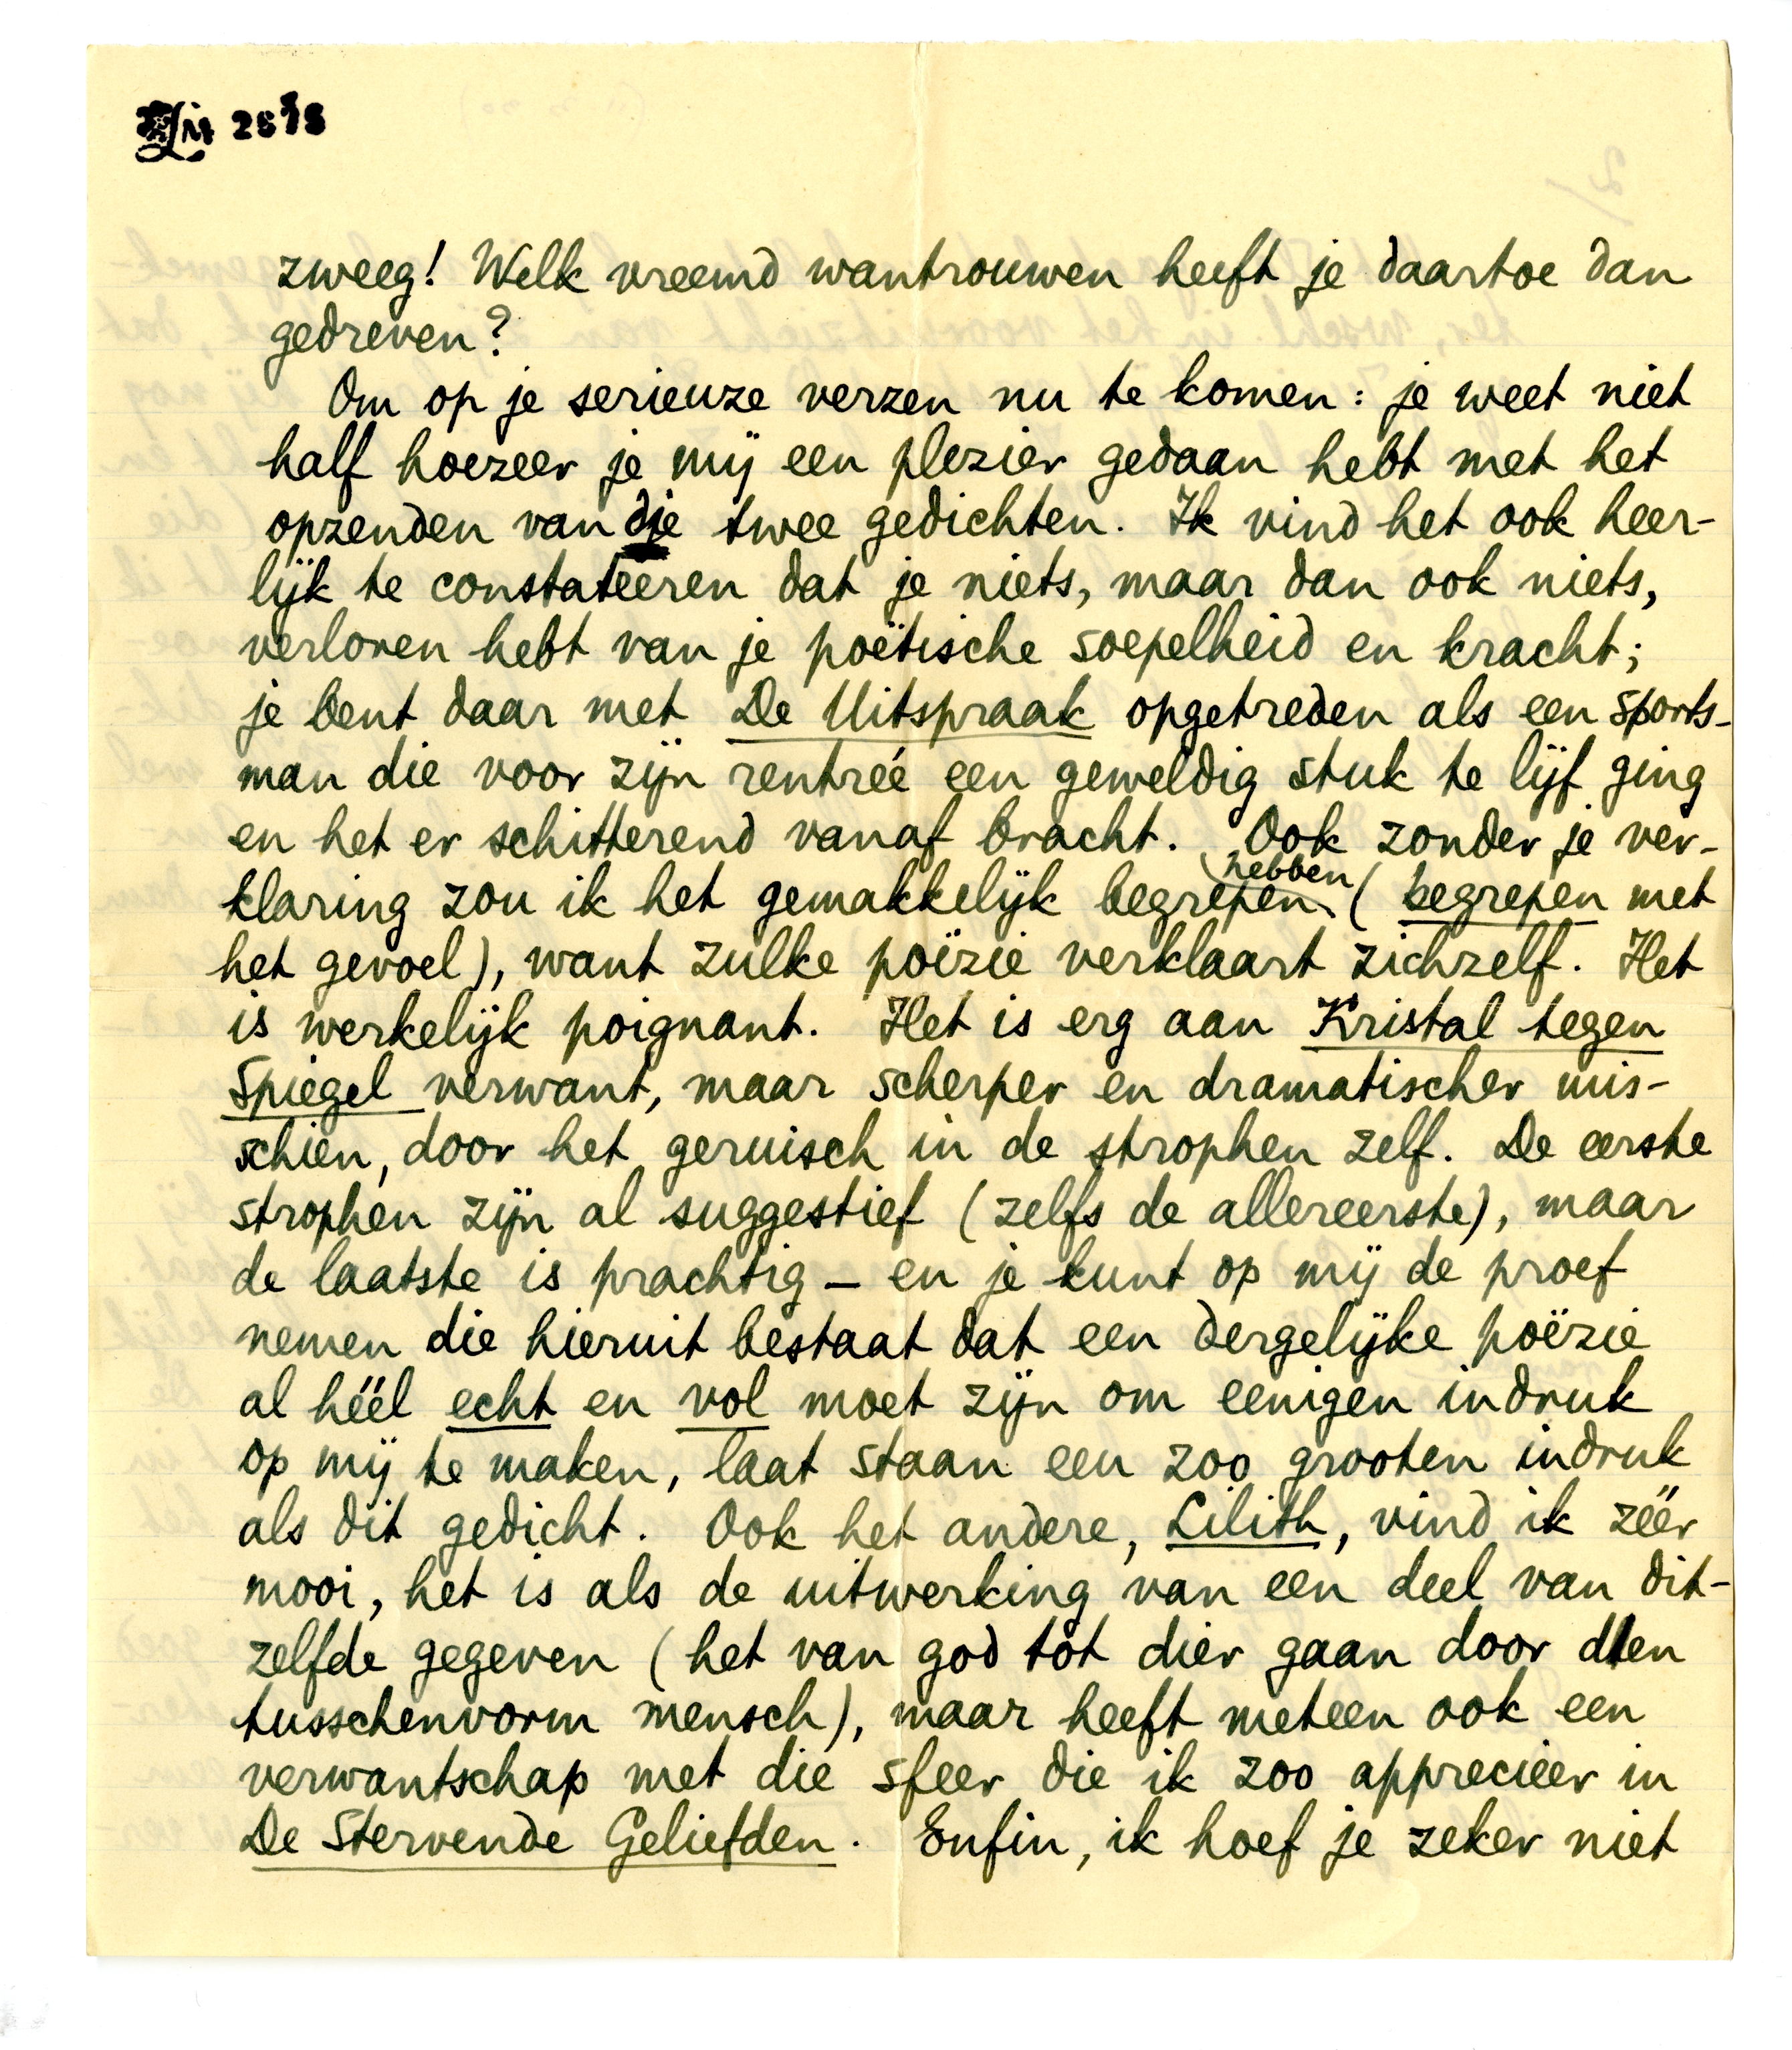 zweeg! Welk vreemd wantrouwen heeft je daartoe dan
gedreven?
Om op je serieuze verzen nu te komen: je weet niet
half hoezeer je mij een plezier gedaan hebt met het
opzenden van die twee gedichten. Ik vind het ook heer-
lijk te constateeren dat je niets, maar dan ook niets,
verloren hebt van je poëtische soepelheid en kracht;
je bent daar met De Uitspraak opgetreden als een sports-
man die voor zijn rentreé een geweldig stuk te lijf ging
en het er schitterend vanaf bracht. Ook zonder je ver-
klaring zou ik het gemakkelijk begrepen hebben (begrepen met
het gevoel), want zulke poëzie verklaart zichzelf. Het
is werkelijk poignant. Het is erg aan Kristal tegen
Spiegel verwant, maar scherper en dramatischer mis-
schien, door het geruisch in de strophen zelf. De eerste
strophen zijn al suggestief (zelfs de allereerste), maar
de laatste is prachtig – en je kunt op mij de proef
nemen die hieruit bestaat dat een dergelijke poëzie
al héél echt en vol moet zijn om eenigen indruk
op mij te maken, laat staan een zoo grooten indruk
als dit gedicht. Ook het andere, Lilith, vind ik zéér
mooi, het is als de uitwerking van een deel van dit-
zelfde gegeven (het van god tot dier gaan door den
tusschenvorm mensch), maar heeft meteen ook een
verwantschap met die sfeer die ik zoo apprecieer in
De Stervende Geliefden. Enfin, ik hoef je zeker niet